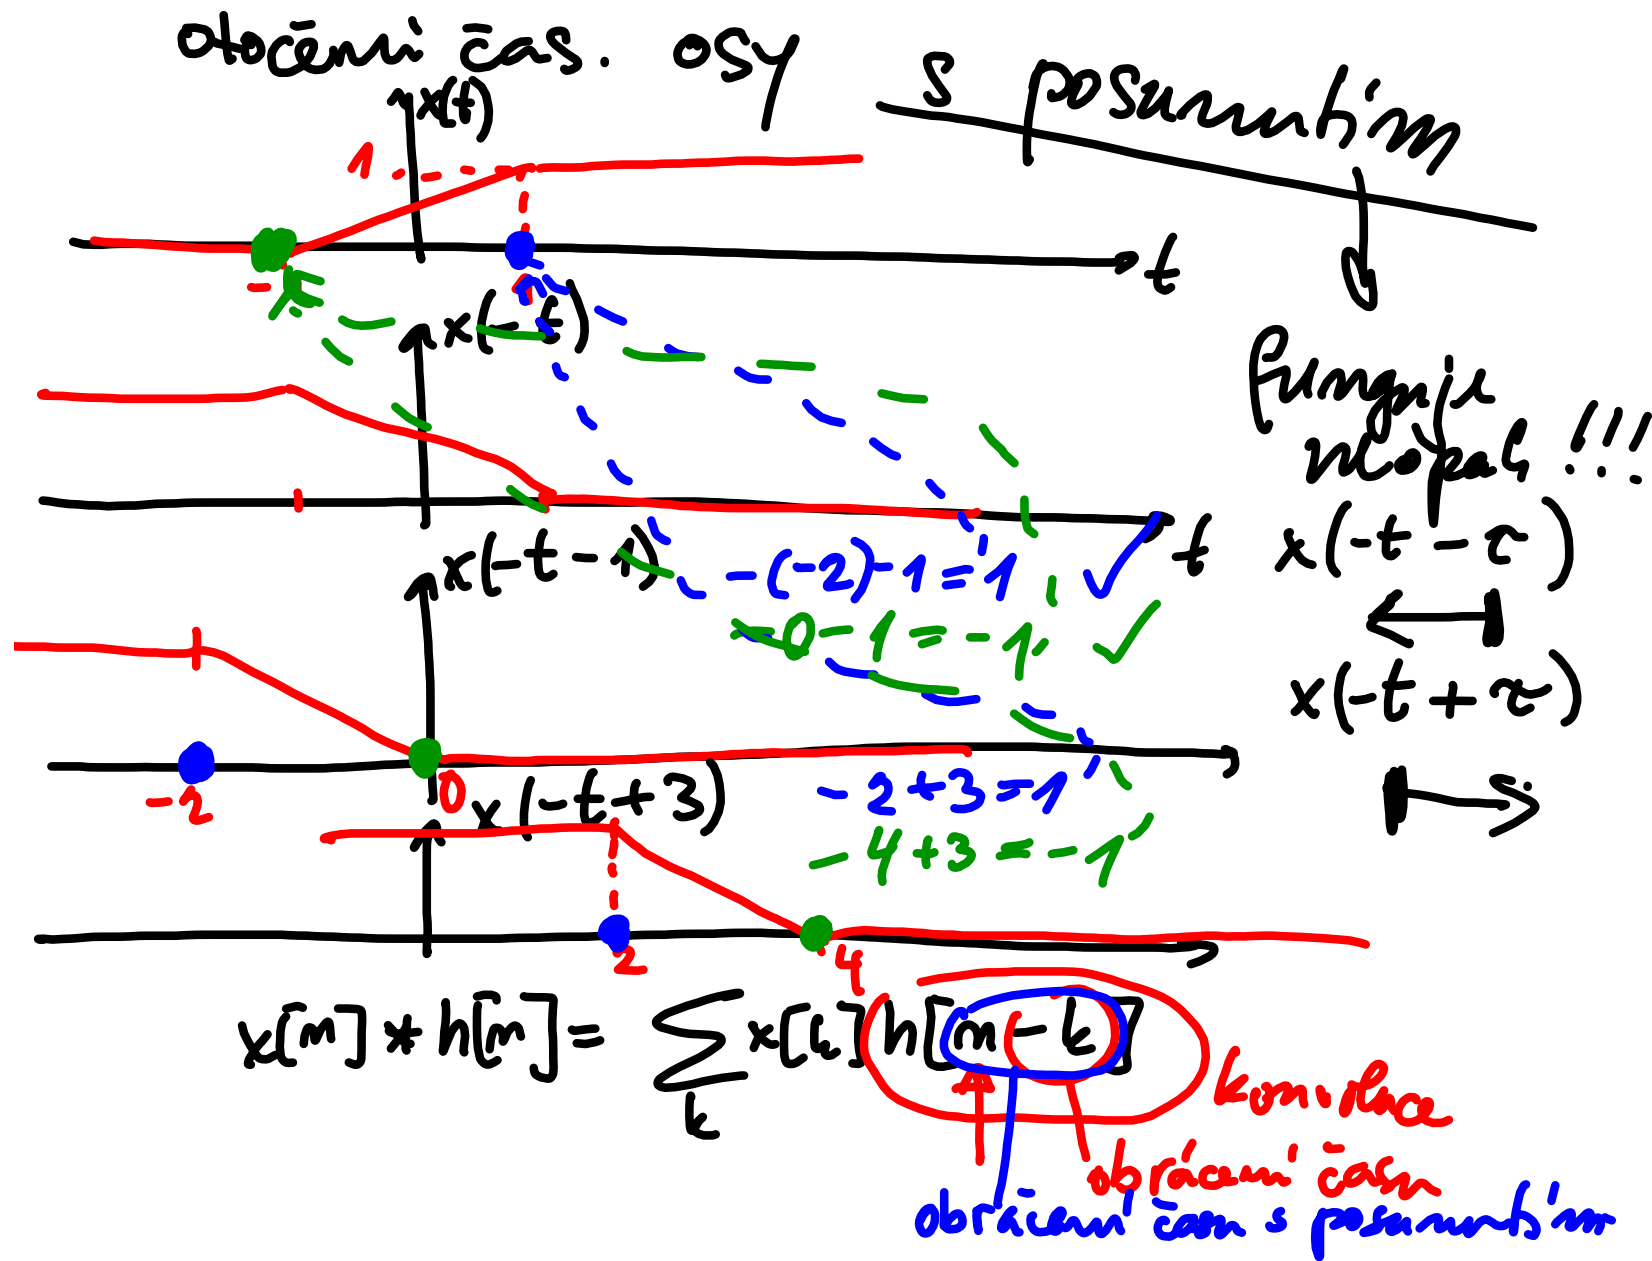 otočení čas. osy s posunutím
x(t)
1
t
-1
1
x(-t)
funguje
naopak !!!
t
x(-t-1)
-(-2)-1=1 ✓
-0-1=-1, ✓
x(-t-τ)
x(-t+τ)
-2
0
x(-t+3)
-2+3=1
-4+3=-1
2
4
x[n] * h[n] = ∑ x[k] h[n-k]
k
konvoluce
obrácení času
obrácení času s posunutím